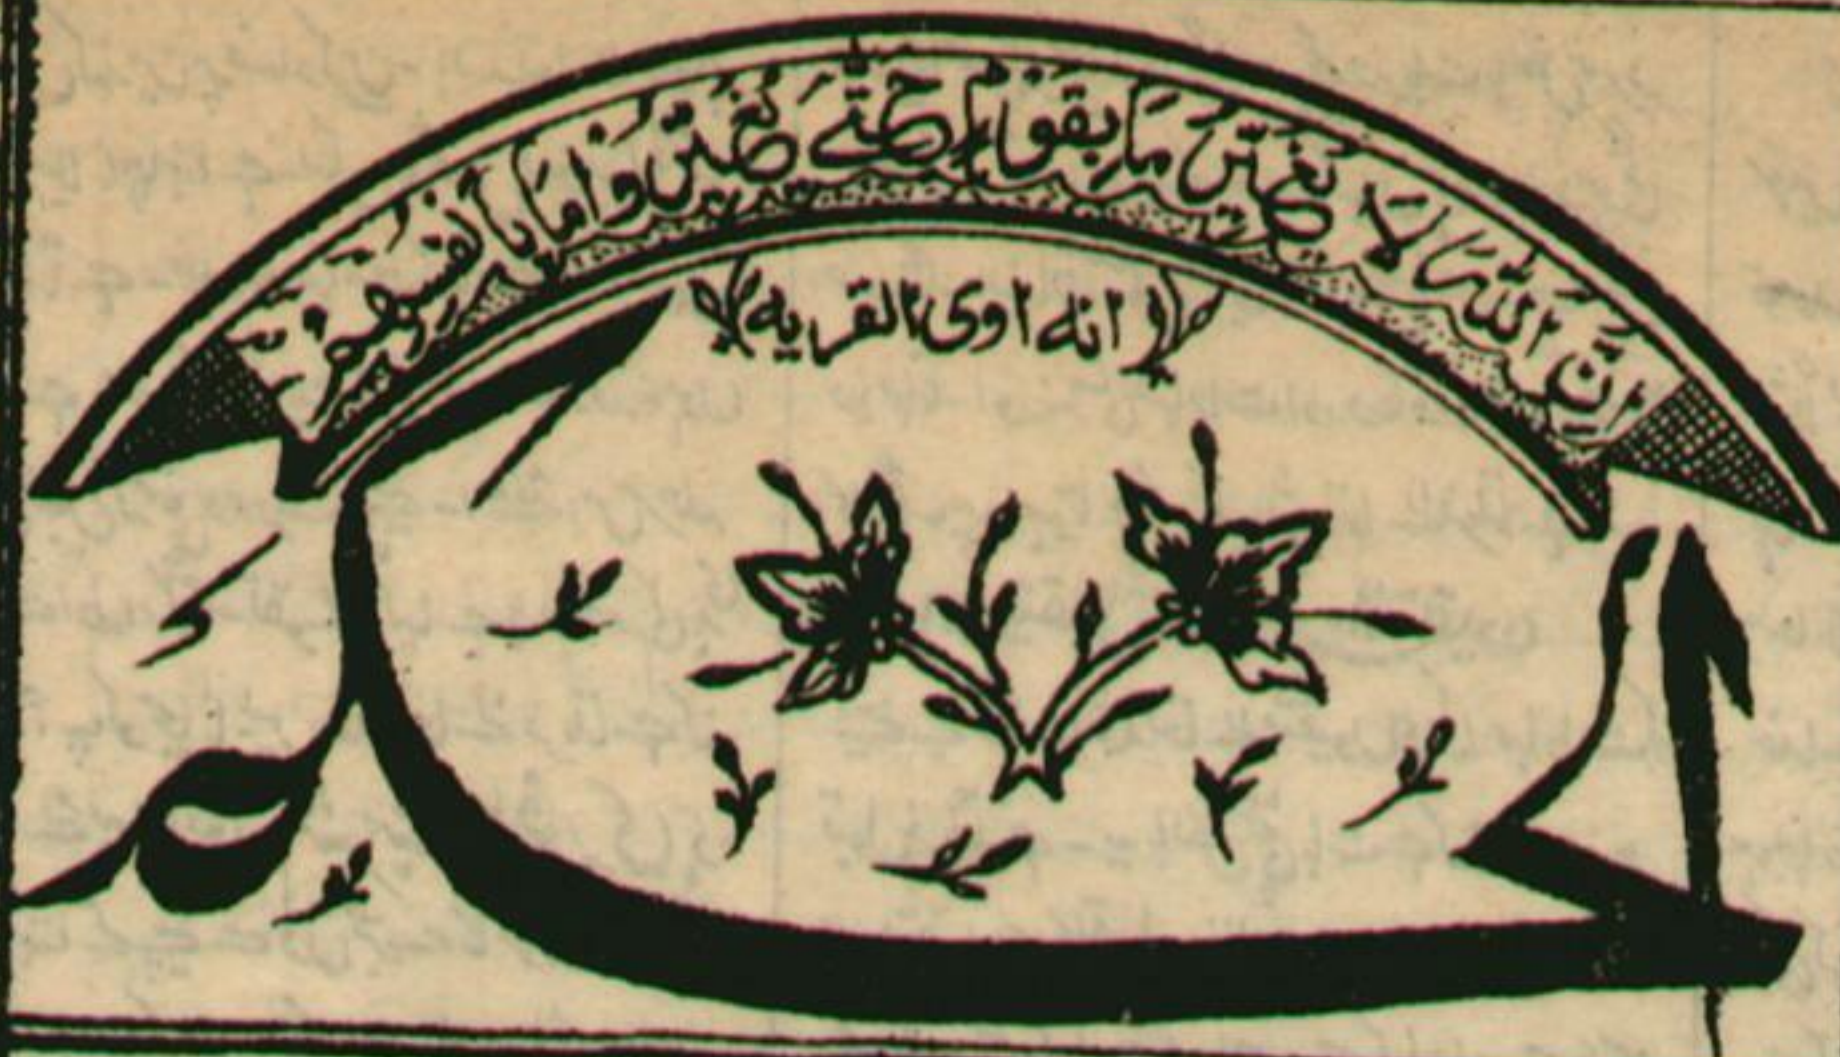 اِنَّ اللهَ لَا یُغَیِّرُ مَا بِقَوْمٍ حَتّٰے یُغَیِّرُوْا مَا بِاَنْفُسِهِمْ
(انه اوی القریه)
الحکم